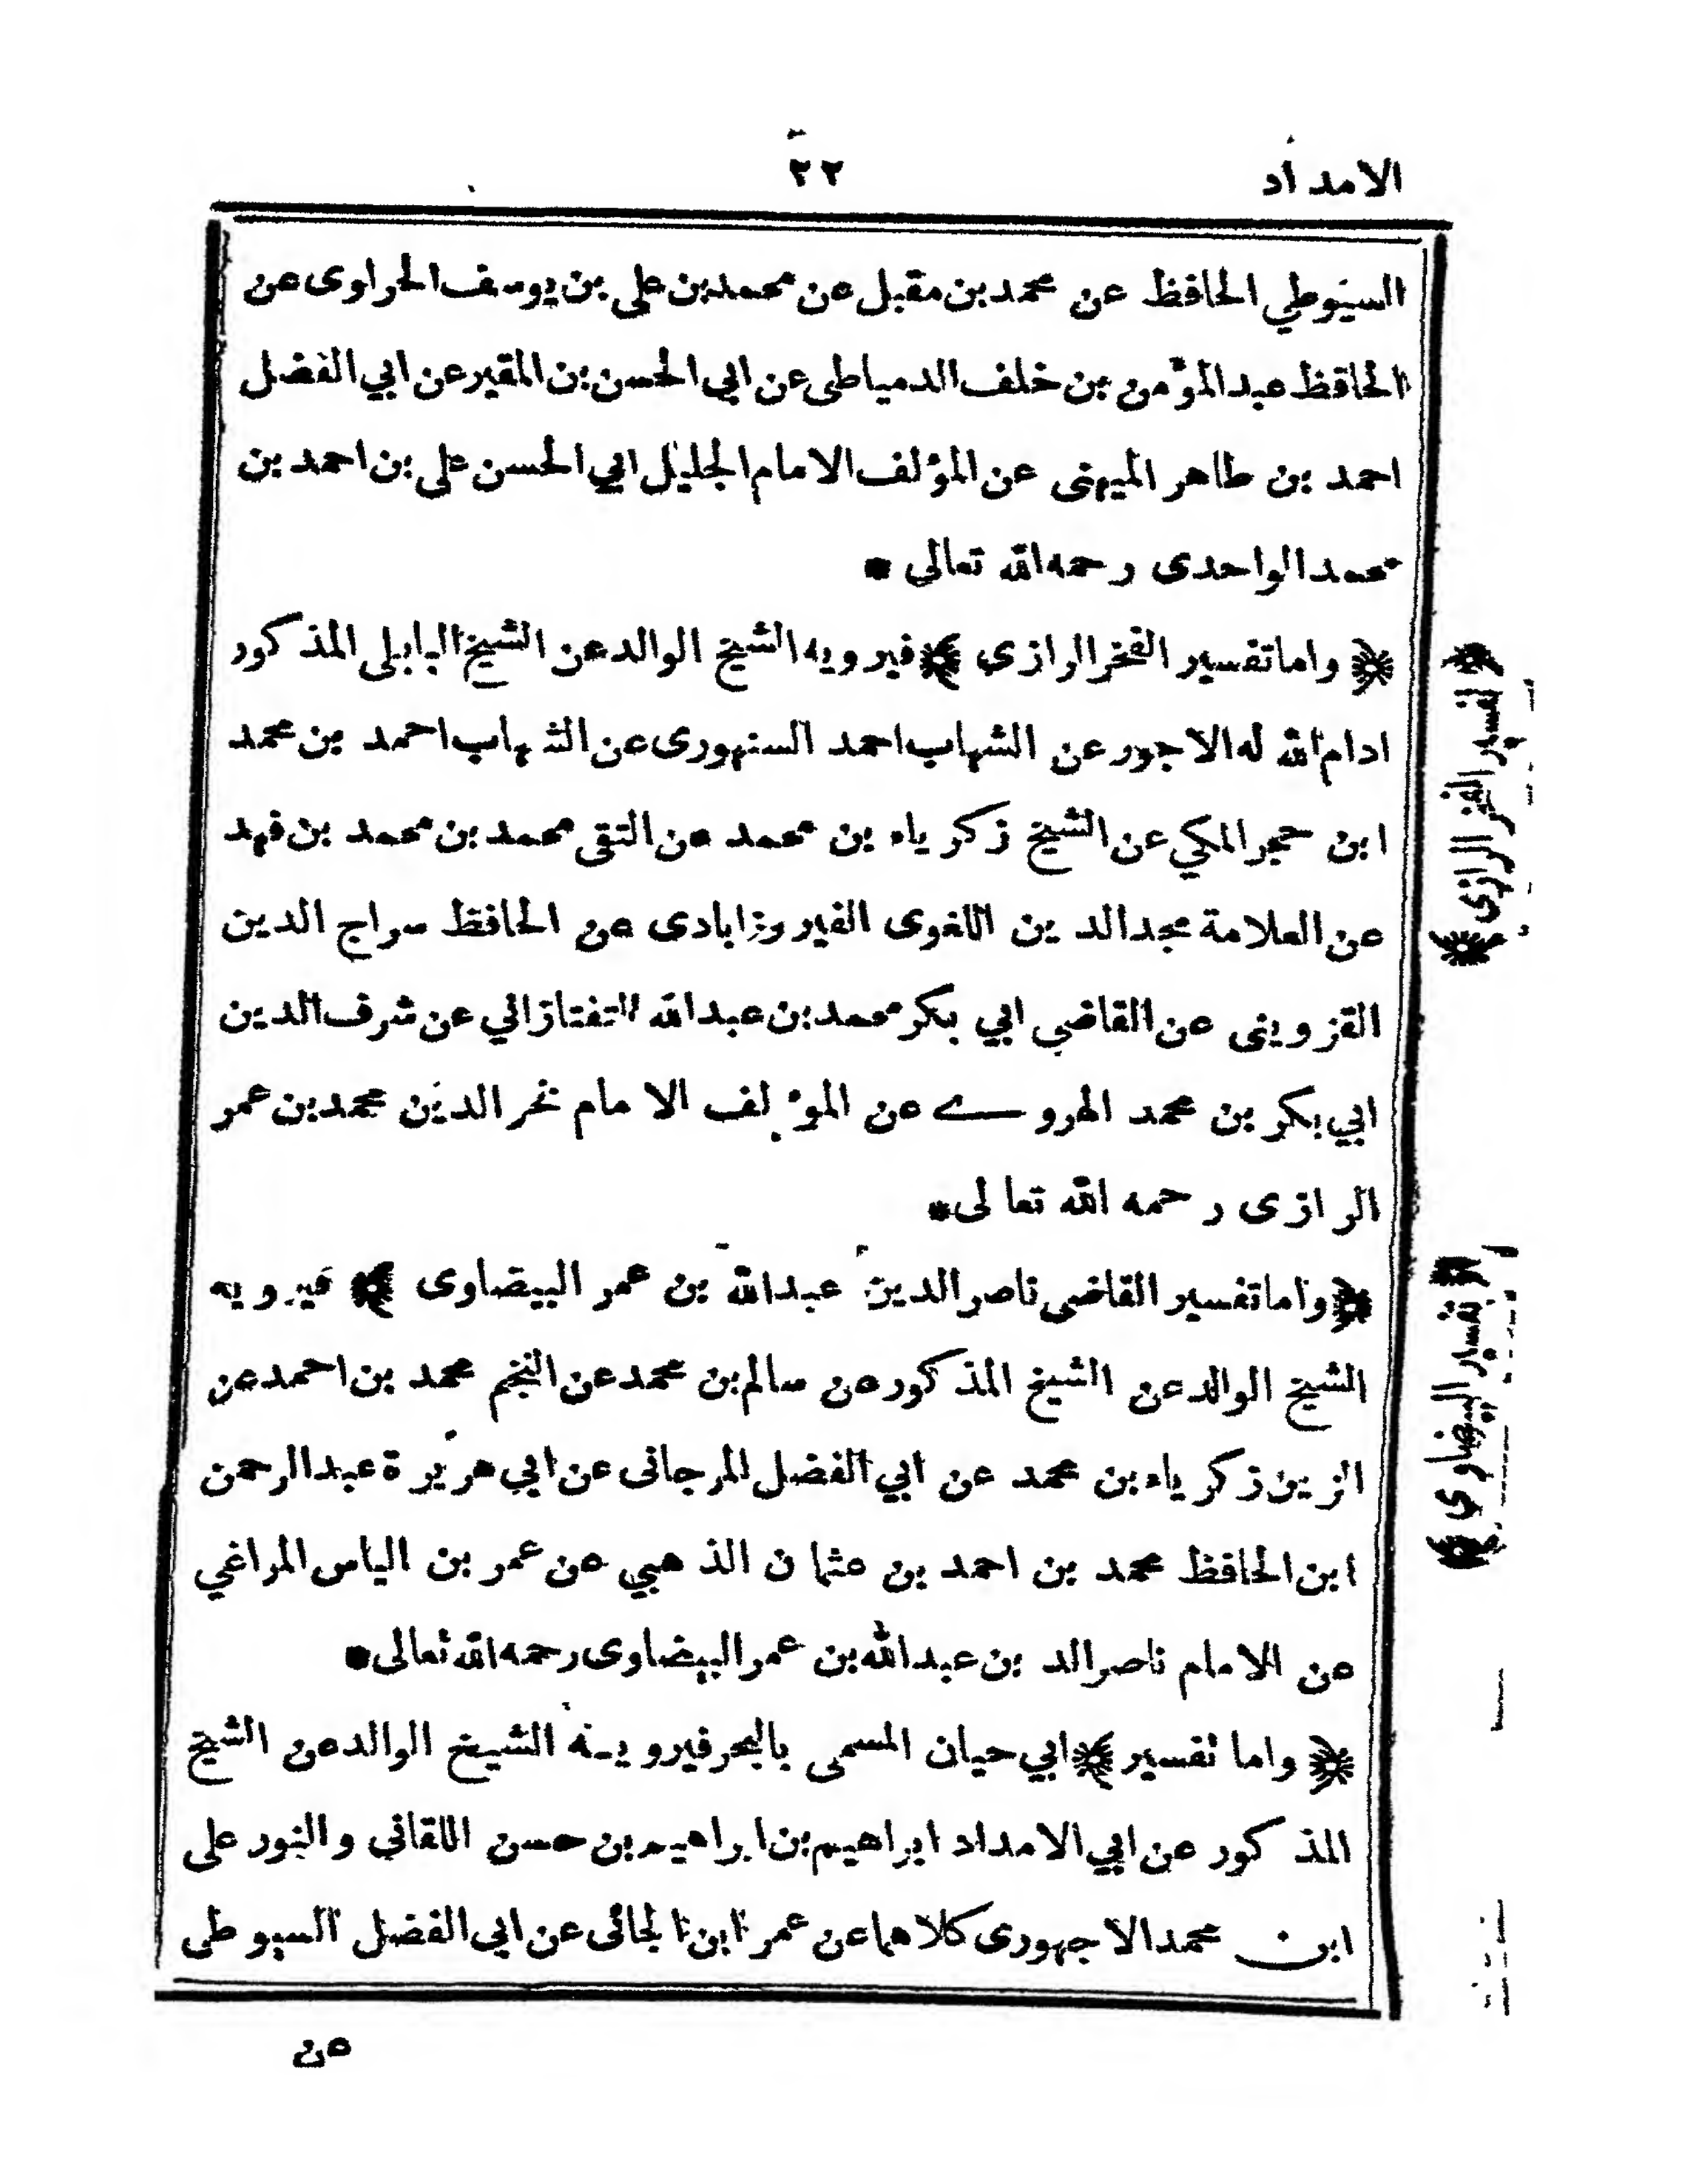 الامداد
٢٢
السيوطي الحافظ عن محمد بن مقبل عن محمد بن علي بن يوسف الحراوى عن
الحافظ عبد المؤمن بن خلف الدمياطى عن ابي الحسن بن المقير عن ابي الفضل
احمد بن طاهر الميهنى عن المؤلف الامام الجليل ابي الحسن على بن احمد بن
محمد الواحدى رحمه الله تعالى *
﴿ واما تفسير الفخر الرازي ﴾ فيرويه الشيخ الوالد عن الشيخ البابلى المذكور
ادام الله له الاجور عن الشهاب احمد السنهورى عن الشهاب احمد بن محمد
ابن حجر المكي عن الشيخ زكرياء بن محمد عن التقى محمد بن محمد بن فهد
عن العلامة مجد الدين اللغوى الفيروزابادى عن الحافظ سراج الدين
القزوينى عن القاضي ابي بكر محمد بن عبد الله التفتازاني عن شرف الدين
ابي بكر بن محمد الهروي عن المؤلف الامام فخر الدين محمد بن عمر
الرازى رحمه الله تعالى *
﴿ واما تفسير القاضى ناصر الدين عبد الله بن عمر البيضاوى ﴾ فيرويه
الشيخ الوالد عن الشيخ المذكور عن سالم بن محمد عن النجم محمد بن احمد عن
الزين زكرياء بن محمد عن ابي الفضل المرجانى عن ابي هريرة عبد الرحمن
ابن الحافظ محمد بن احمد بن عثمان الذهبي عن عمر بن الياس المراغي
عن الامام ناصر الدين عبد الله بن عمر البيضاوى رحمه الله تعالى *
﴿ واما تفسير ﴾ ابي حيان المسمى بالبحر فيرويه الشيخ الوالد عن الشيخ
المذكور عن ابي الامداد ابراهيم بن ابراهيم بن حسن اللقاني والنور على
ابن محمد الاجهورى كلاهما عن عمر ابن الجائى عن ابي الفضل السيوطى
عن
﴿ تفسير الفخر الرازي ﴾
﴿ تفسير البيضاوي ﴾